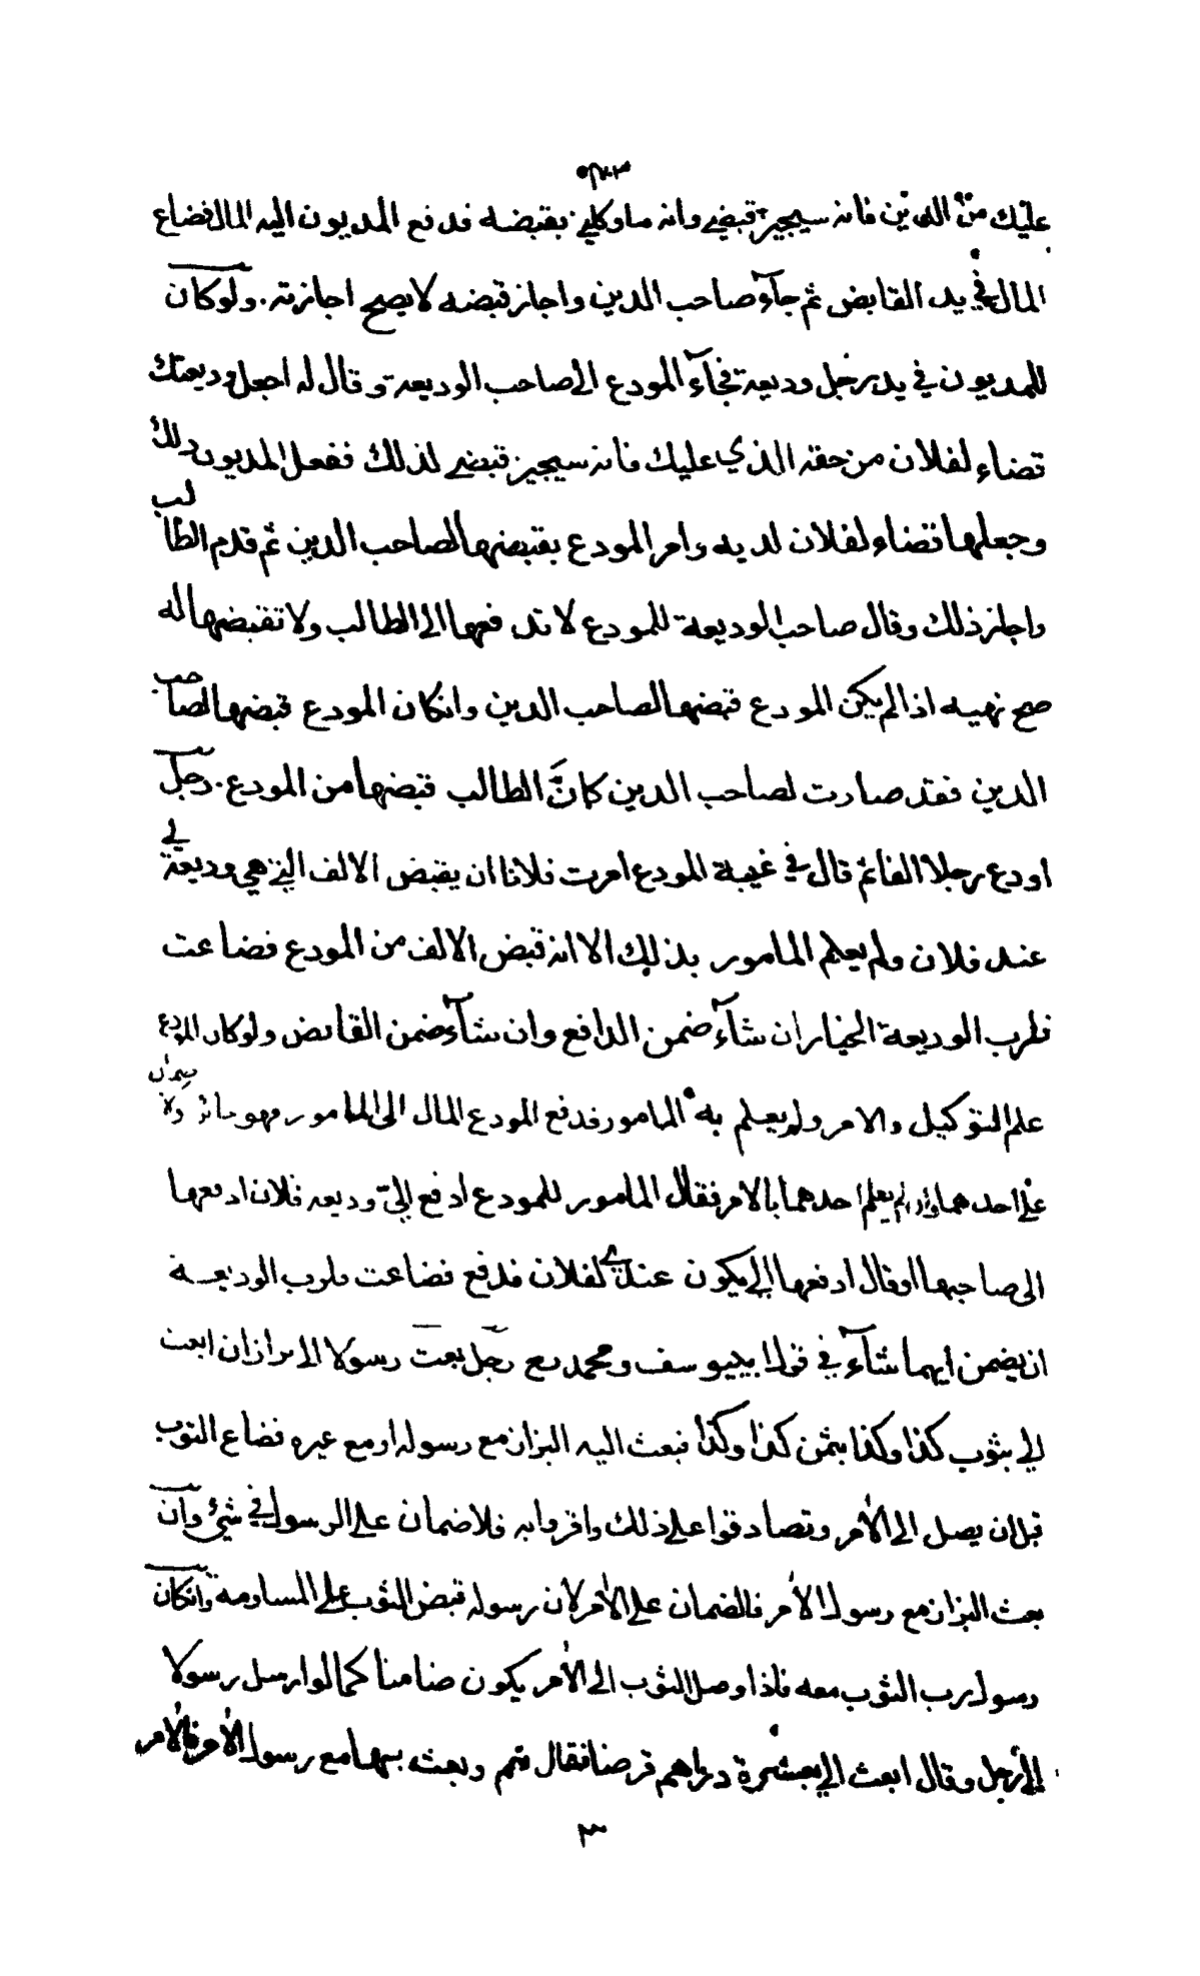 عليك من الدين فانه سيجيز قبضي وانه ما وكلني بقبضه فدفع المديون اليه المال فضاع
المال في يد القابض ثم جآء صاحب الدين واجاز قبضه لا يصح اجازته . ولو كان
للمديون في يد رجل وديعة فجآء المودع الى صاحب الوديعة وقال له اجعل وديعتك
قضاء لفلان من حقه الذي عليك فانه سيجيز قبضي لذلك ففعل المديون ذلك
وجعلها قضاء لفلان لديه وامر المودع بقبضها لصاحب الدين ثم قدم الطالب
واجاز ذلك وقال صاحب الوديعة للمودع لا تدفعها الى الطالب ولا تقبضها له
صح نهيه اذا لم يكن المودع قبضها لصاحب الدين وانكان المودع قبضها لصاحب
الدين فقد صارت لصاحب الدين كانّ الطالب قبضها من المودع . رجل
اودع رجلا الفا ثم قال في غيبة المودع امرت فلانا ان يقبض الالف التي هي وديعة لي
عند فلان ولم يعلم المامور بذلك الا انه قبض الالف من المودع فضاعت
فلرب الوديعة الخيار ان شآء ضمن الدافع وان شآء ضمن القابض ولو كان المودع
علم التوكيل والامر ولم يعلم به المامور فدفع المودع المال الى المامور فهو جائز ولا ضمان
على احدهما وان لم يعلم احدهما بالامر فقال المامور للمودع ادفع اليّ وديعه فلان ادفعها
الى صاحبها او قال ادفعها الي يكون عندي لفلان فدفع فضاعت فلرب الوديعة
ان يضمن ايهما شآء في قول ابي يوسف ومحمد رجل بعث رسولا الى بزاز ان ابعث
الي بثوب كذا وكذا بثمن كذا وكذا فبعث اليه البزاز مع رسوله او مع غيره فضاع الثوب
قبل ان يصل الى الآمر وتصادقوا على ذلك واقروا به فلا ضمان على الرسول في شئ وان
بعث البزاز مع رسول الآمر فالضمان على الآمر لان رسوله قبض الثوب على المساومة وانكان
رسول رب الثوب معه فاذا وصل الثوب الى الآمر يكون ضامنا كما لو ارسل رسولا
الى رجل وقال ابعث الي بعشرة دراهم قرضا فقال نعم وبعث بها مع رسول الآمر فالآمر
٣